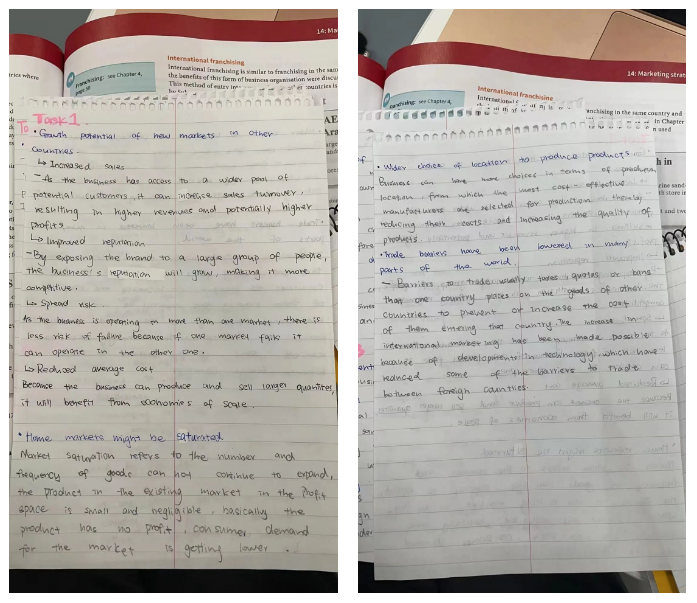 14: Ma
International franchising
International franchising is similar to franchising in the sam
the benefits of this form of business organisation were discu
This method of entry in
Franchising: see Chapter 4,
ries where
Task 1
• Growth potential of new markets in other
countries.
↳ Increased sales
- As the business has access to a wider pool of
potential customers, it can increase sales turnover,
resulting in higher revenues and potentially higher
profits
↳ Improved reputation
- By exposing the brand to a large group of people,
the business's reputation will grow, making it more
competitive.
↳ Spread risk.
As the business is operating in more than one market, there is
less risk of failure because if one market fails it
can operate in the other one.
↳ Reduced average cost
Because the business can produce and sell larger quantities,
it will benefit from economies of scale.
• Home markets might be saturated.
Market saturation refers to the number and
frequency of goods can not continue to expand,
the product in the existing market in the profit
space is small and negligible, basically the
product has no profit, consumer demand
for the market is getting lower.
14: Marketing strat
International franchising
International
franchising: see Chapter 4,
anchising in the same country and
In Chapter
n used
h in
• Wider choice of location to produce products.
Business can have more choices in terms of production
location, from which the most cost effective
manufacturers are selected for production thereby
reducing their costs and increasing the quality of
products
• Trade barriers have been lowered in many
parts of the world.
- Barriers to trade usually taxes, quotas or bans
that one country places on the goods of other
countries to prevent or increase the cost
of them entering that country. The increase in
international marketing has been made possible
because of developments in technology, which have
reduced some of the barriers to trade
between foreign countries.